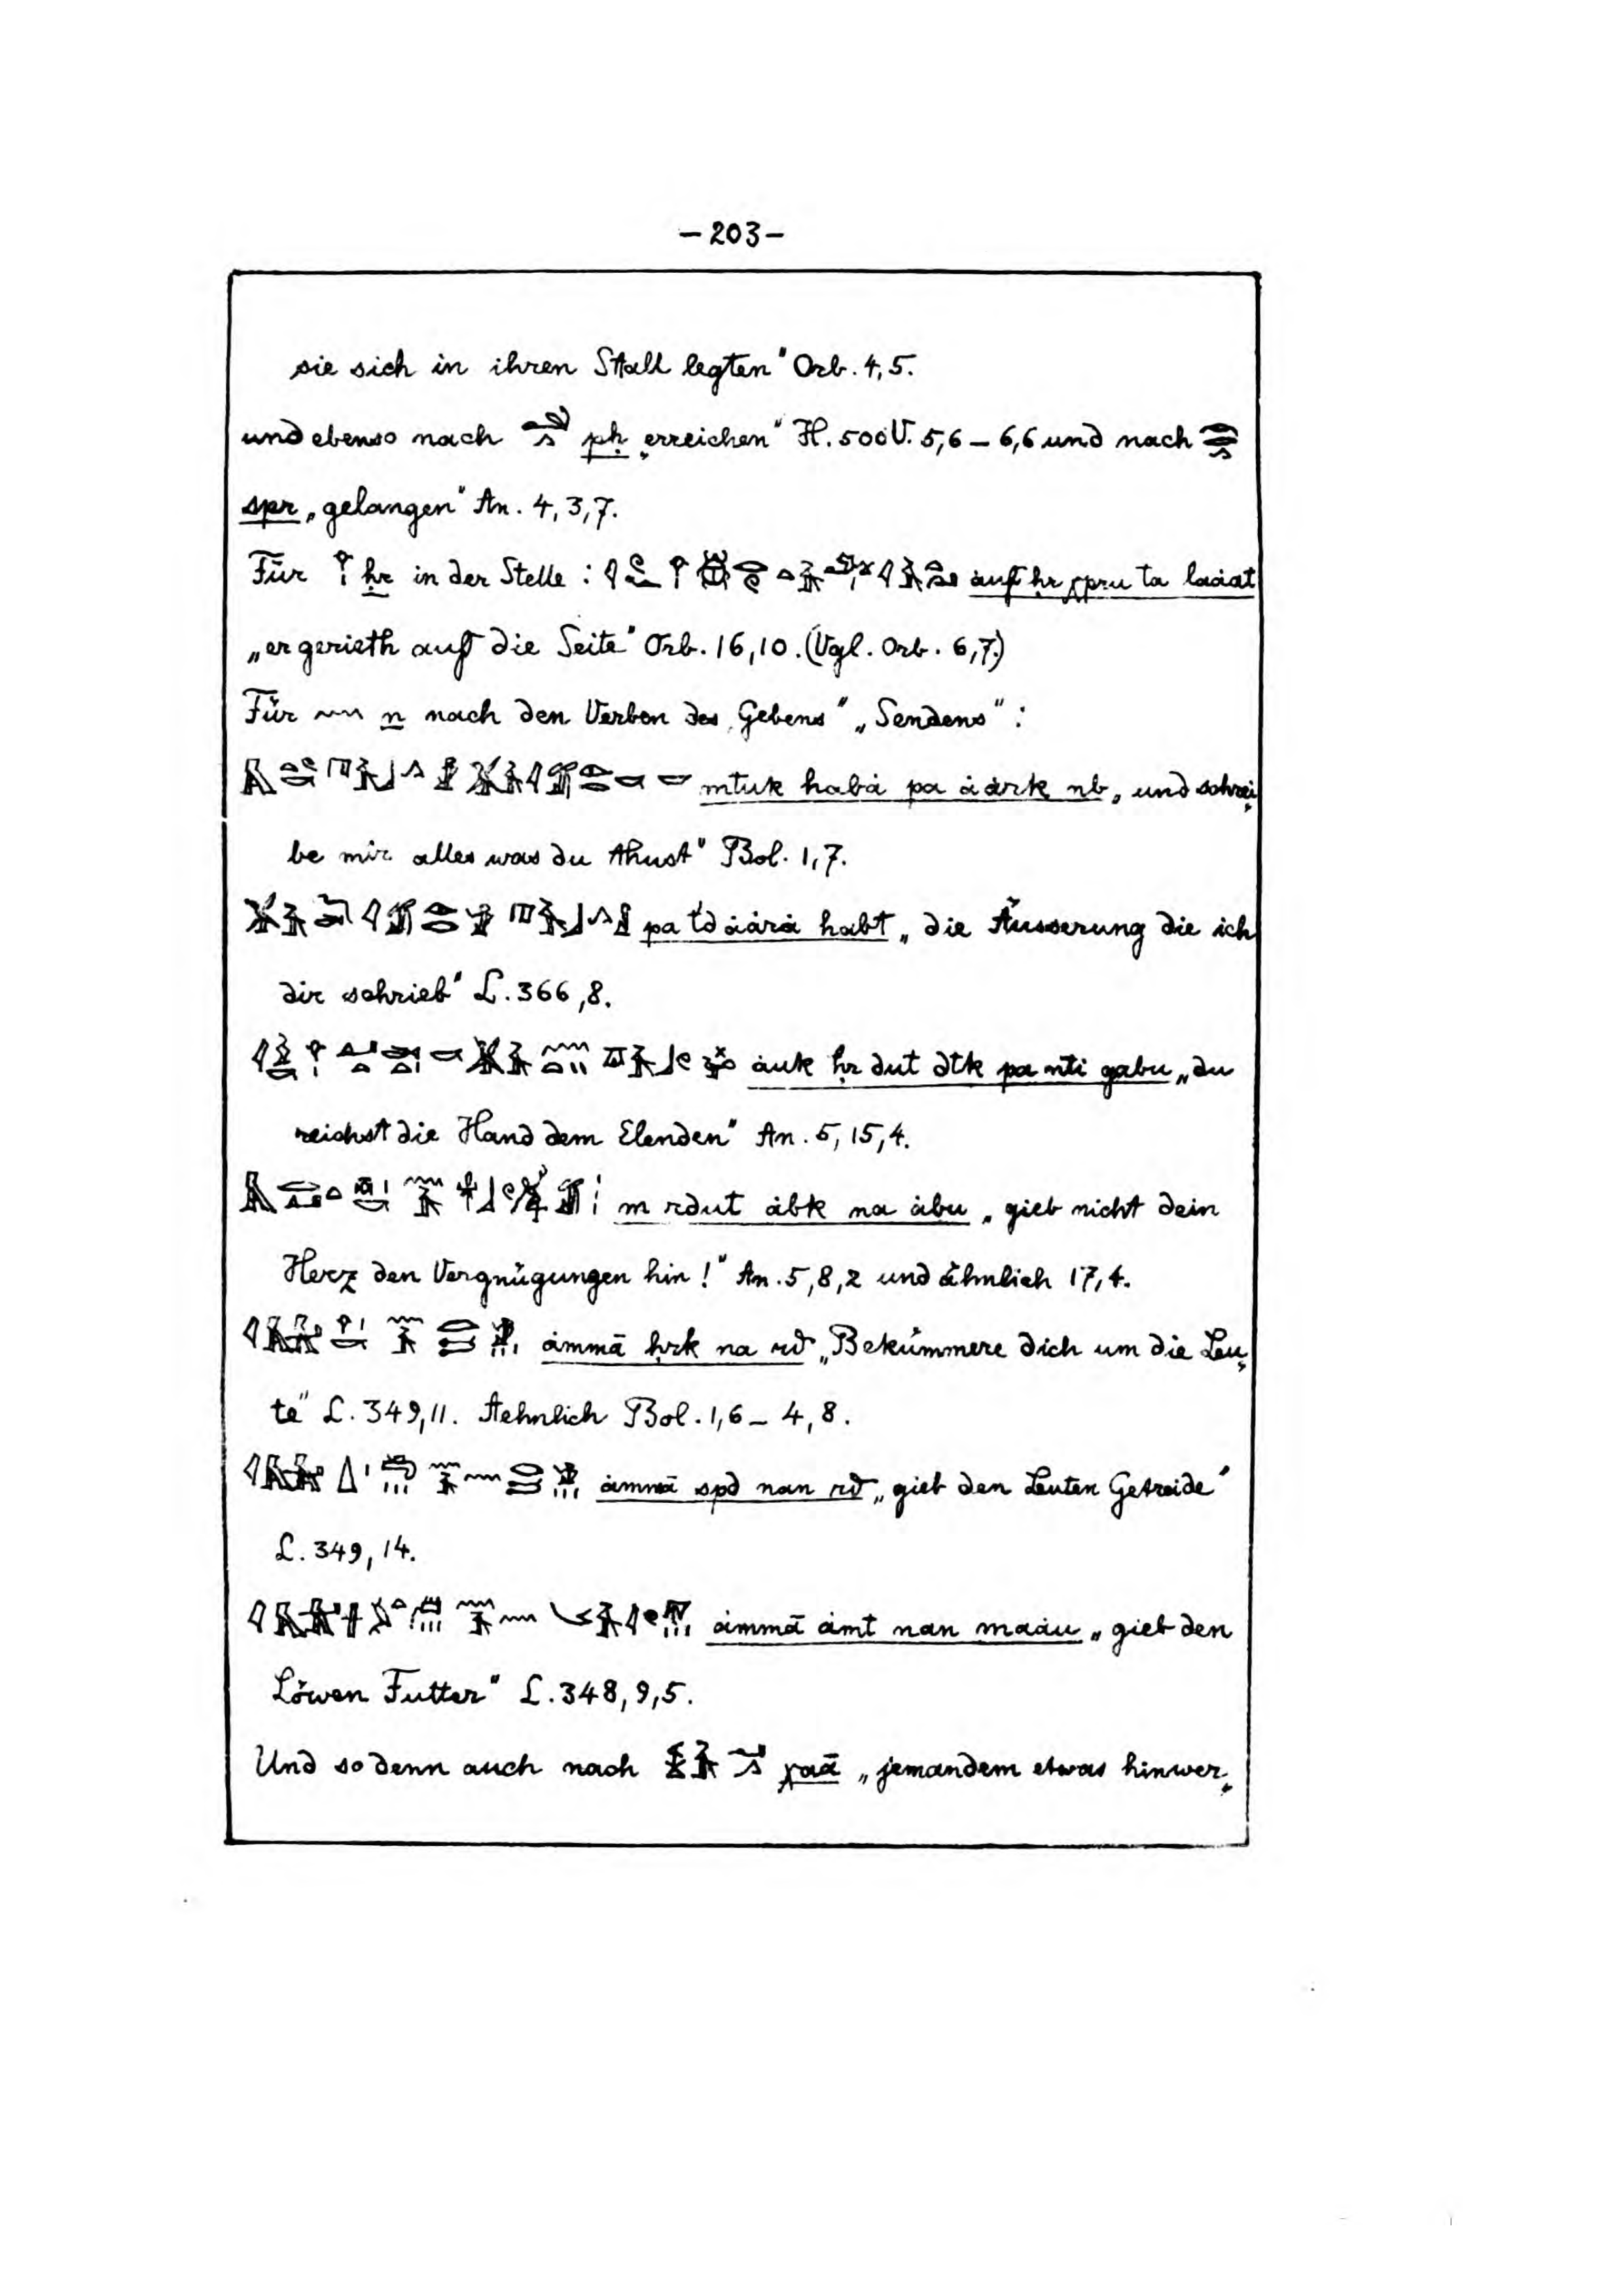 – 203 –
sie sich in ihren Stall legten" Orb. 4,5.
und ebenso nach pḥ „erreichen" H. 500 V. 5,6 – 6,6 und nach
spr „gelangen" An. 4, 3,7.
Für ḥr in der Stelle : áuf ḥr χpru ta laáat
„er gerieth auf die Seite" Orb. 16,10. (Vgl. Orb. 6,7.)
Für n nach den Verben des „Gebens" „Sendens" :
mtuk habá pa áárk nb „ und schrei„
be mir alles was du thust" Bol. 1,7.
pa t'd áárá habt „ die Äusserung die ich
dir schrieb" L. 366,8.
áuk ḥr dut dtk pa nti gabu „du
reichst die Hand dem Elenden" An. 5, 15,4.
m rdut ábk na ábu „ gieb nicht dein
Herz den Vergnügungen hin !" An. 5,8,2 und ähnlich 17,4.
ámmā ḥrk na rd „Bekümmere dich um die Leu„
te" L. 349,11. Aehnlich Bol. 1,6 – 4,8.
ámmā spd nan rd „ gieb den Leuten Getreide"
L. 349, 14.
ámmā ámt nan maáu „ gieb den
Löwen Futter" L. 348, 9,5.
Und so denn auch nach χaā „jemandem etwas hinwer„